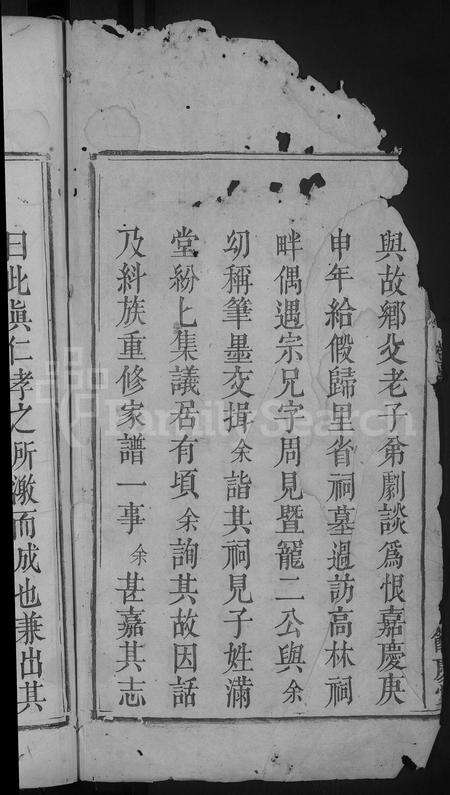 與故鄉父老子弟劇談爲恨嘉慶庚
申年給假歸里省祠墓過訪高林祠
畔偶遇宗兄字周見暨寵二公與余
幼稱筆墨交揖余詣其祠見子姓滿
堂紛上集議居有頃余詢其故因話
及糾族重修家譜一事余甚嘉其志
曰此真仁孝之所激而成也兼出其
FamilySearch